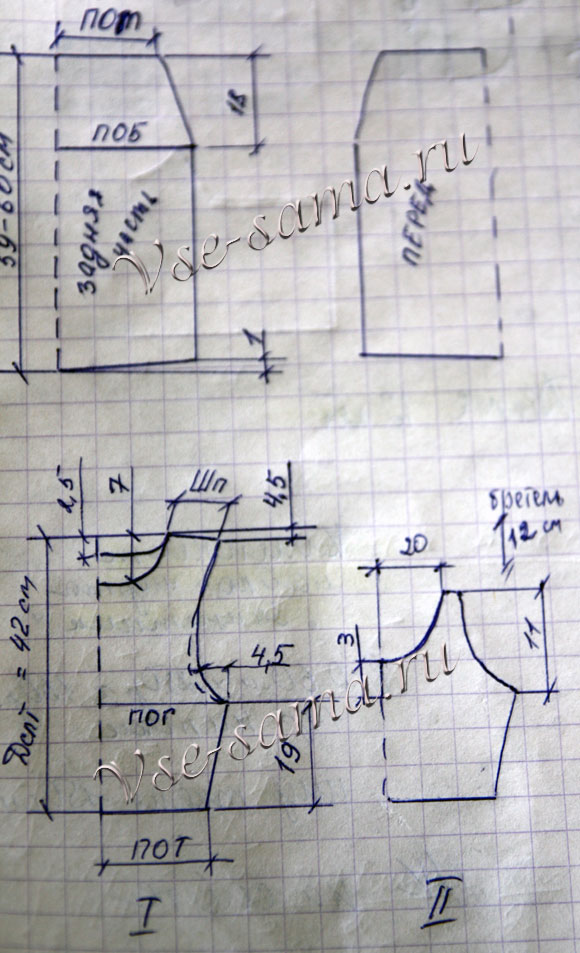 ПОТ
18
ПОБ
задняя
часть
ПЕРЕД
1
Vse-sama.ru
2,5
7
Шп
4,5
бретель
12 см
20
Дспт = 42 см
3
11
4,5
ПОГ
19
Vse-sama.ru
ПОТ
I
II